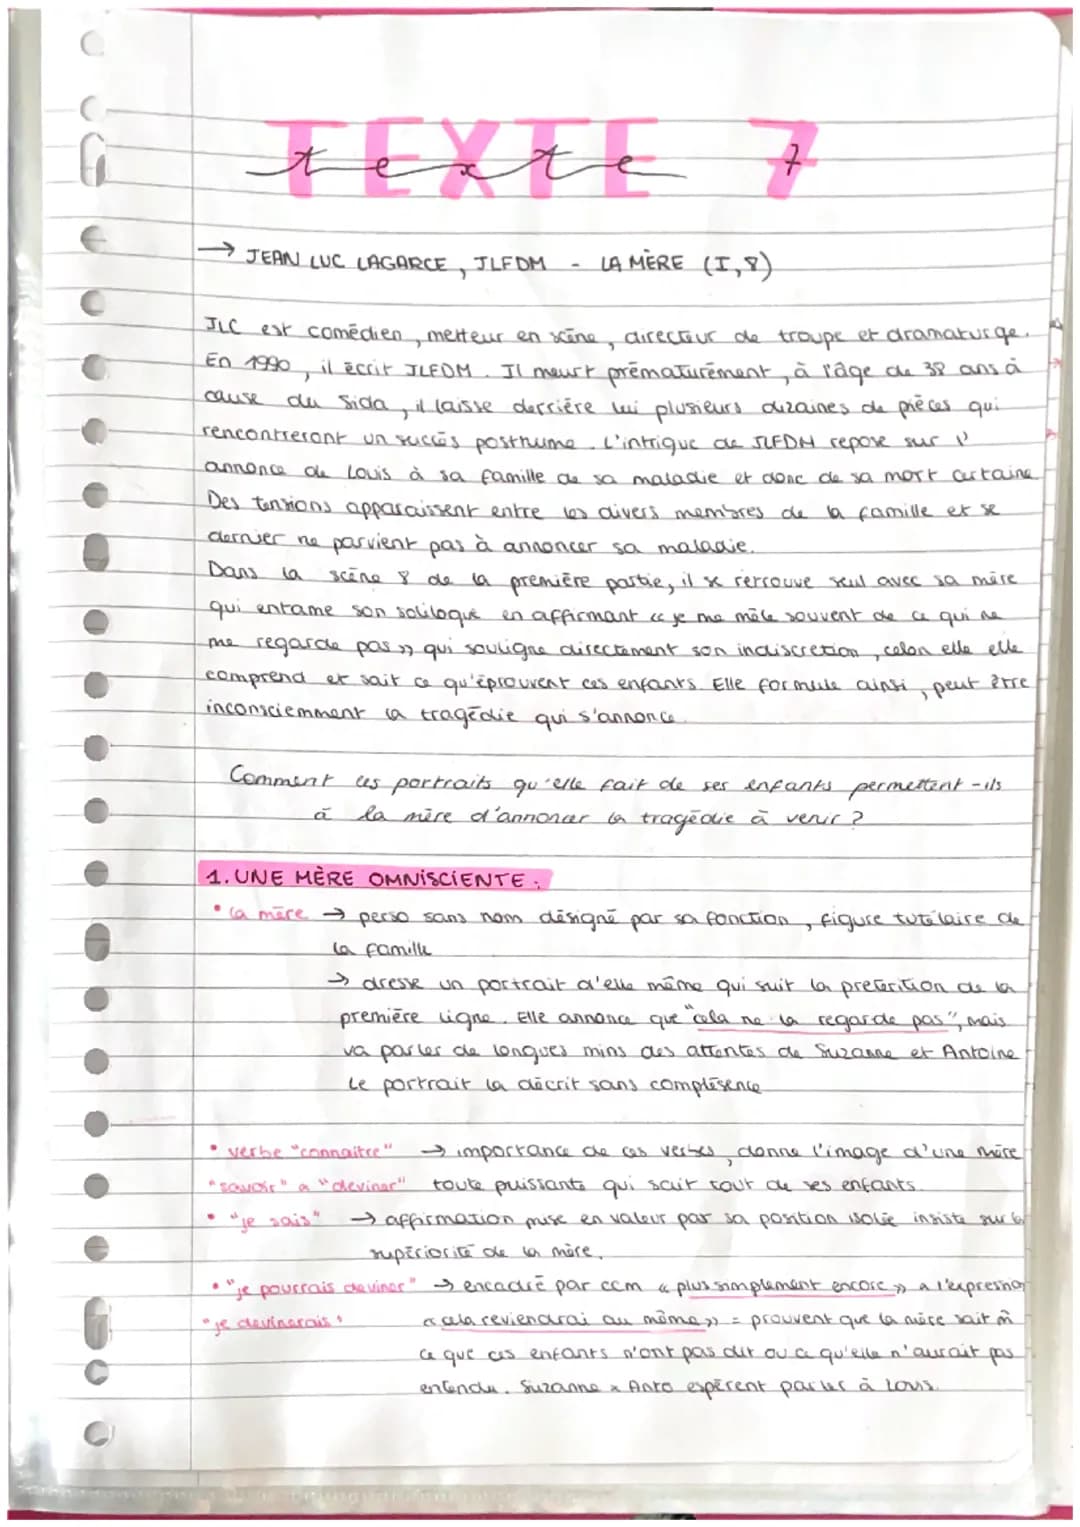 TEXTE 7
texte
→ JEAN LUC LAGARCE, JLFDM - LA MÈRE (I,8)
JLC est comédien, metteur en scène, directeur de troupe et dramaturge.
En 1990, il écrit JLFDM. Il meurt prématurément, à l'âge de 38 ans à
cause du Sida, il laisse derrière lui plusieurs dizaines de pièces qui
rencontreront un succès posthume. L'intrigue de JLFDM repose sur l'
annonce de Louis à sa famille de sa maladie et donc de sa mort certaine
Des tensions apparaissent entre les divers membres de la famille et se
dernier ne parvient pas à annoncer sa maladie.
Dans la scène 8 de la première partie, il se retrouve seul avec sa mère
qui entame son soliloque en affirmant « je me mêle souvent de ce qui ne
me regarde pas » qui souligne directement son indiscrétion, celon elle elle
comprend et sait ce qu'éprouvent ces enfants. Elle formule ainsi, peut être
inconsciemment la tragédie qui s'annonce.
Comment les portraits qu'elle fait de ses enfants permettent-ils
à la mère d'annoncer la tragédie à venir ?
1. UNE MÈRE OMNISCIENTE :
• la mère → perso sans nom désigné par sa fonction, figure tutélaire de
la famille
→ dresse un portrait d'elle même qui suit la preterition de la
première ligne. Elle annonce que "cela ne la regarde pas", mais
va parler de longues mins des attentes de Suzanne et Antoine
Le portrait la décrit sans complésence
• verbe "connaitre" → importance de ces verbes, donne l'image d'une mère
"savoir" a "deviner" toute puissante qui sait tout de ses enfants.
• "je sais" → affirmation mise en valeur par sa position isolée insiste sur la
supériorité de la mère.
• "je pourrais deviner" → encadré par ccm « plus simplement encore » a l'expression
"je devinerais" « cela reviendrai au même » = prouvent que la mère sait m̂
ce que ces enfants n'ont pas dit ou ce qu'elle n'aurait pas
entendu. Suzanne x Anto espèrent parler à Louis.